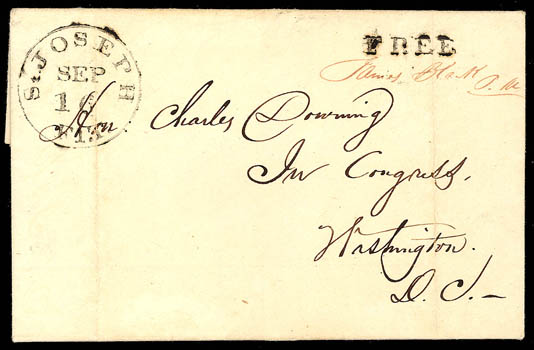 St JOSEPH
SEP
16
Flr.
FREE
James Black P.M
Hon. Charles Downing
In Congress,
Washington.
D. C. –